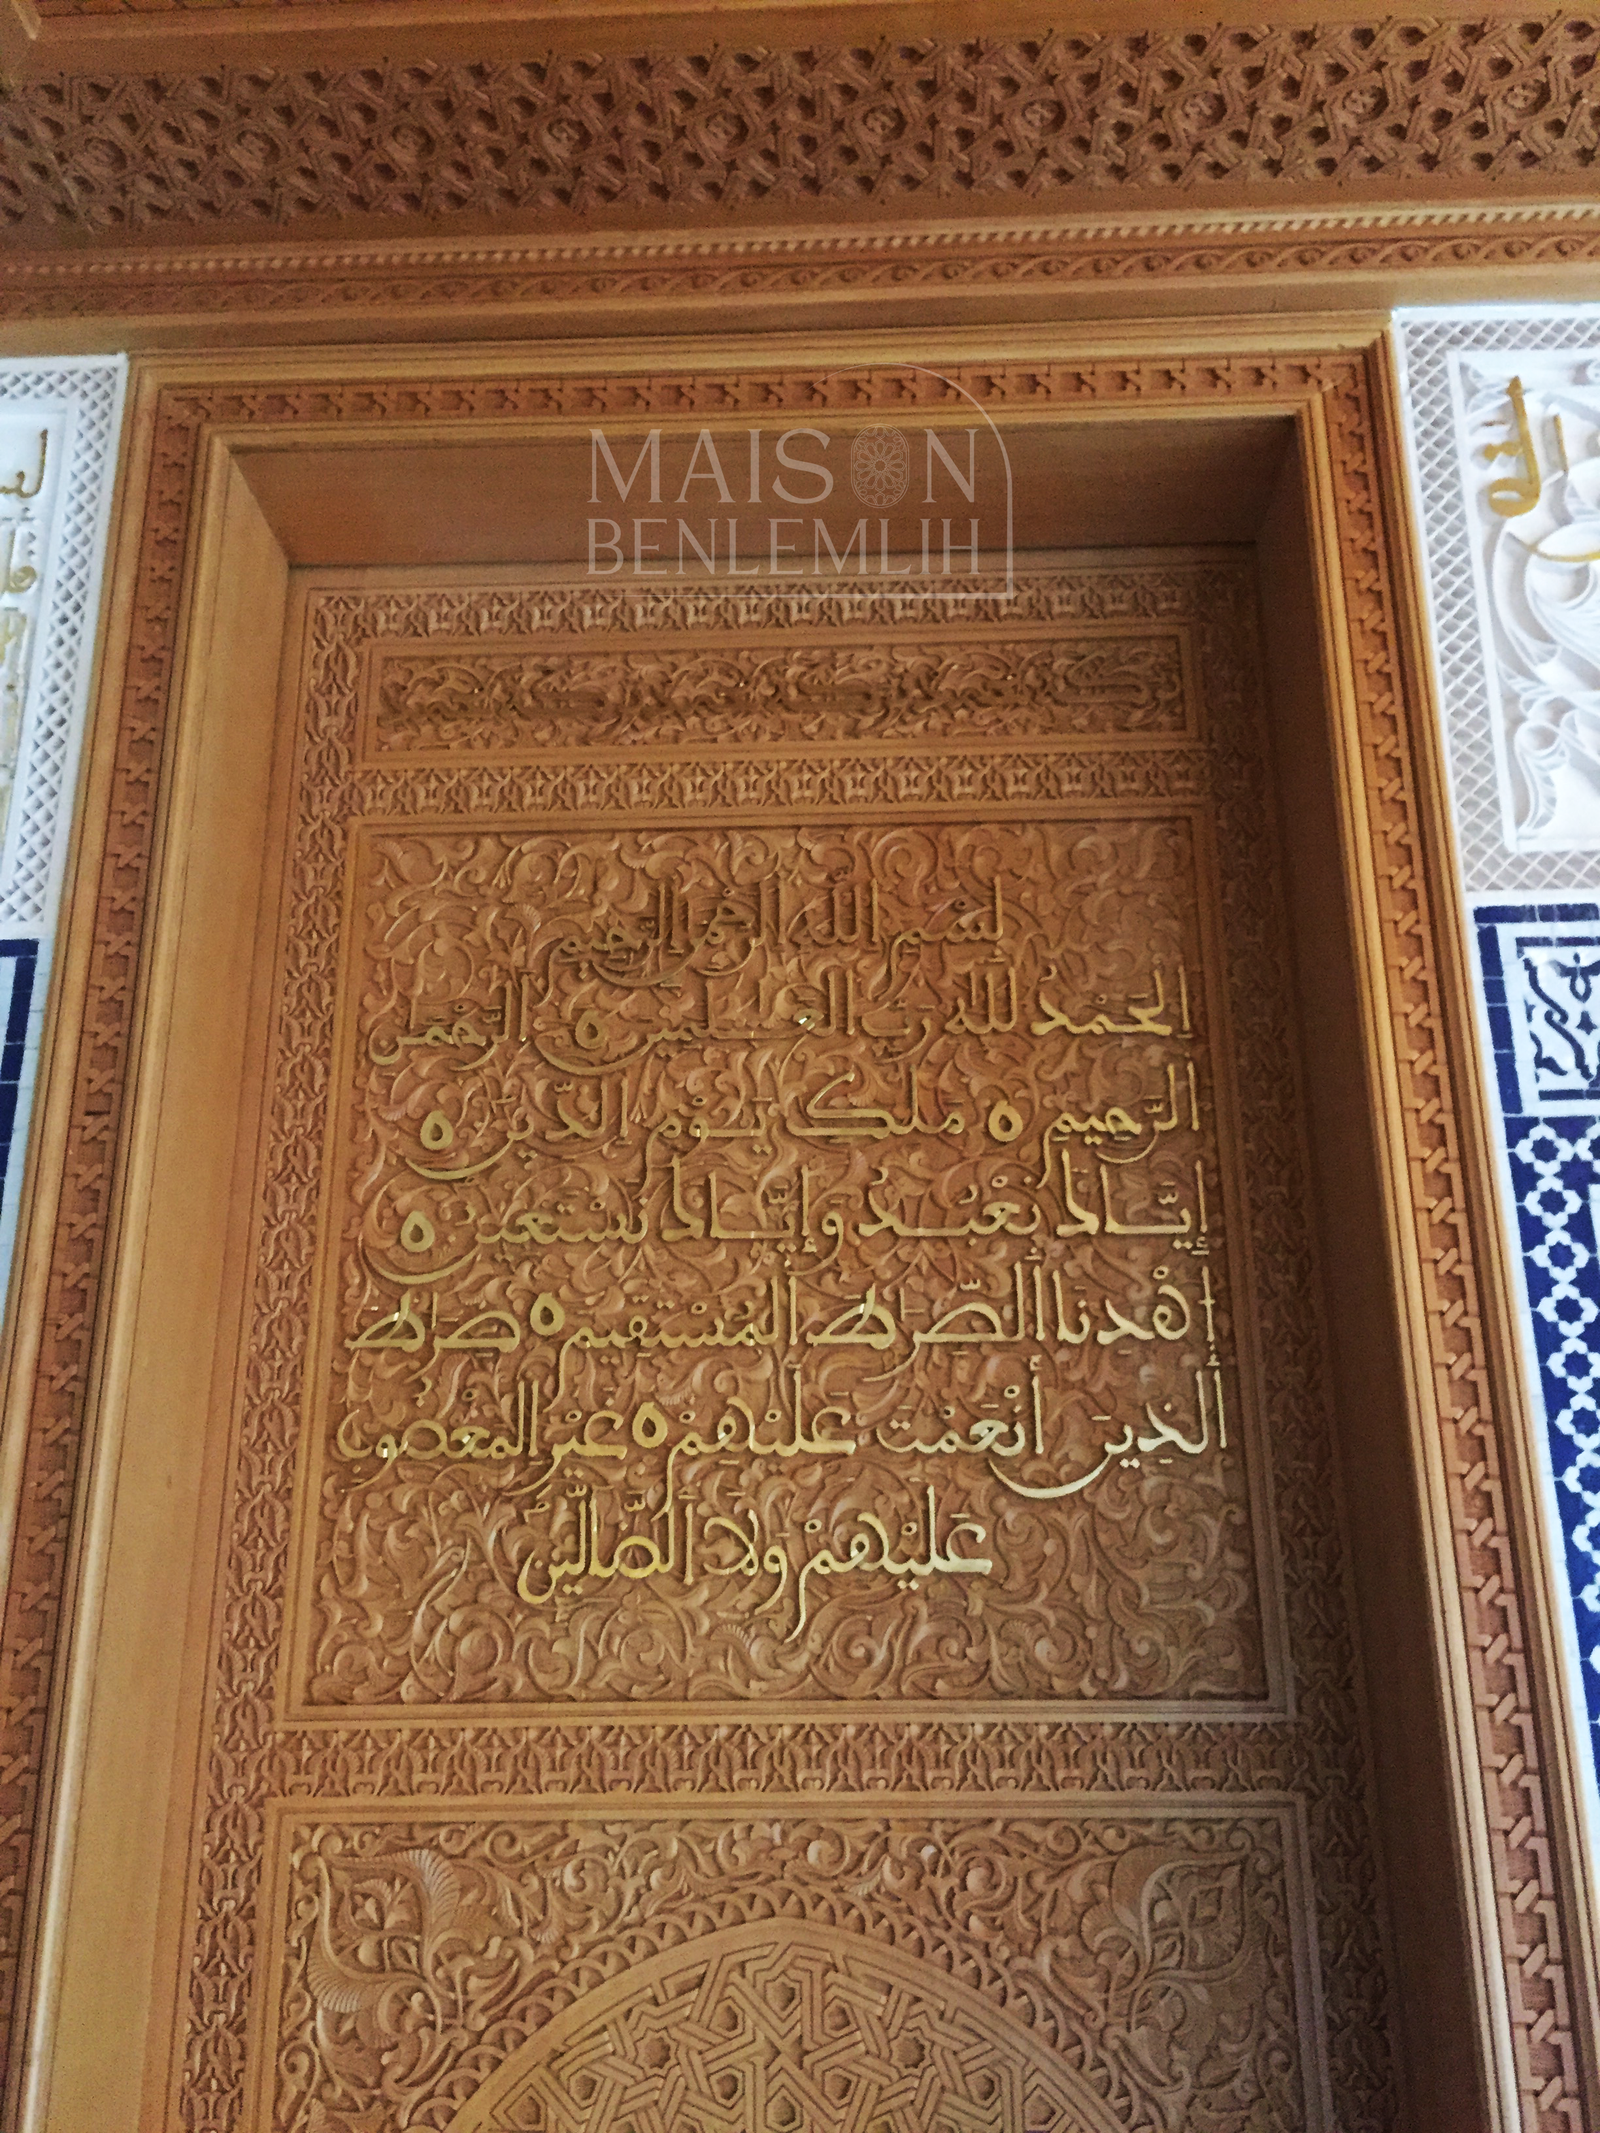 MAISON
BENLEMLIH
بِسْمِ اللَّهِ الرَّحْمَٰنِ الرَّحِيمِ
اِلْحَمْدُ لِلهِ رَبِّ الْعَٰلَمِينَ ٥ الرَّحْمَٰنِ
الرَّحِيمِ ٥ مَلِكِ يَوْمِ الدِّينِ ٥
إِيَّاكَ نَعْبُدُ وَإِيَّاكَ نَسْتَعِينُ ٥
اَهْدِنَا اَلصِّرَٰطَ اَلْمُسْتَقِيمَ ٥ صِرَٰطَ
اَلذِينَ أَنْعَمْتَ عَلَيْهِمْ ٥ غَيْرِ اِلْمَغْضُوبِ
عَلَيْهِمْ وَلَا اَلضَّآلِّينَ